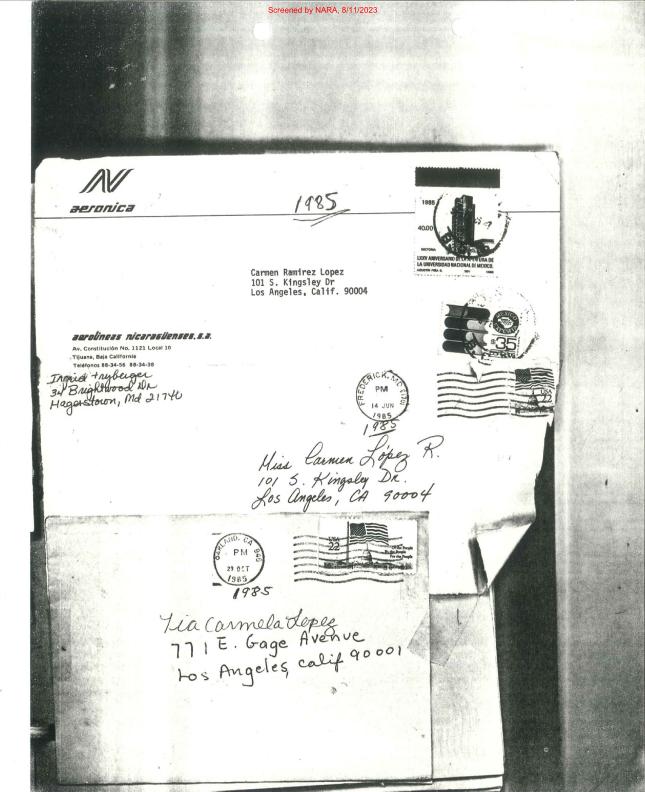 Screened by NARA, 8/11/2023
aeronica
1985
1985
40.00
LXXV ANIVERSARIO DE LA APERTURA DE
LA UNIVERSIDAD NACIONAL DE MEXICO.
Carmen Ramirez Lopez
101 S. Kingsley Dr
Los Angeles, Calif. 90004
$35
aerolineas nicaragüenses, s.a.
Av. Constitución No. 1121 Local 10
Tijuana, Baja California
Teléfonos 88-34-56 88-34-38
Ingrid Fryberger
34 Brightwood Dr
Hagerstown, Md 21740
FREDERICK, MD
PM
14 JUN
1985
USA
22
1985
Miss Carmen López R.
101 S. Kingsley Dr.
Los Angeles, CA 90004
OAKLAND, CA
PM
29 OCT
1985
USA
22
Of the People
By the People
For the People
1985
Tia Carmela Lopez
771 E. Gage Avenue
Los Angeles, calif 90001